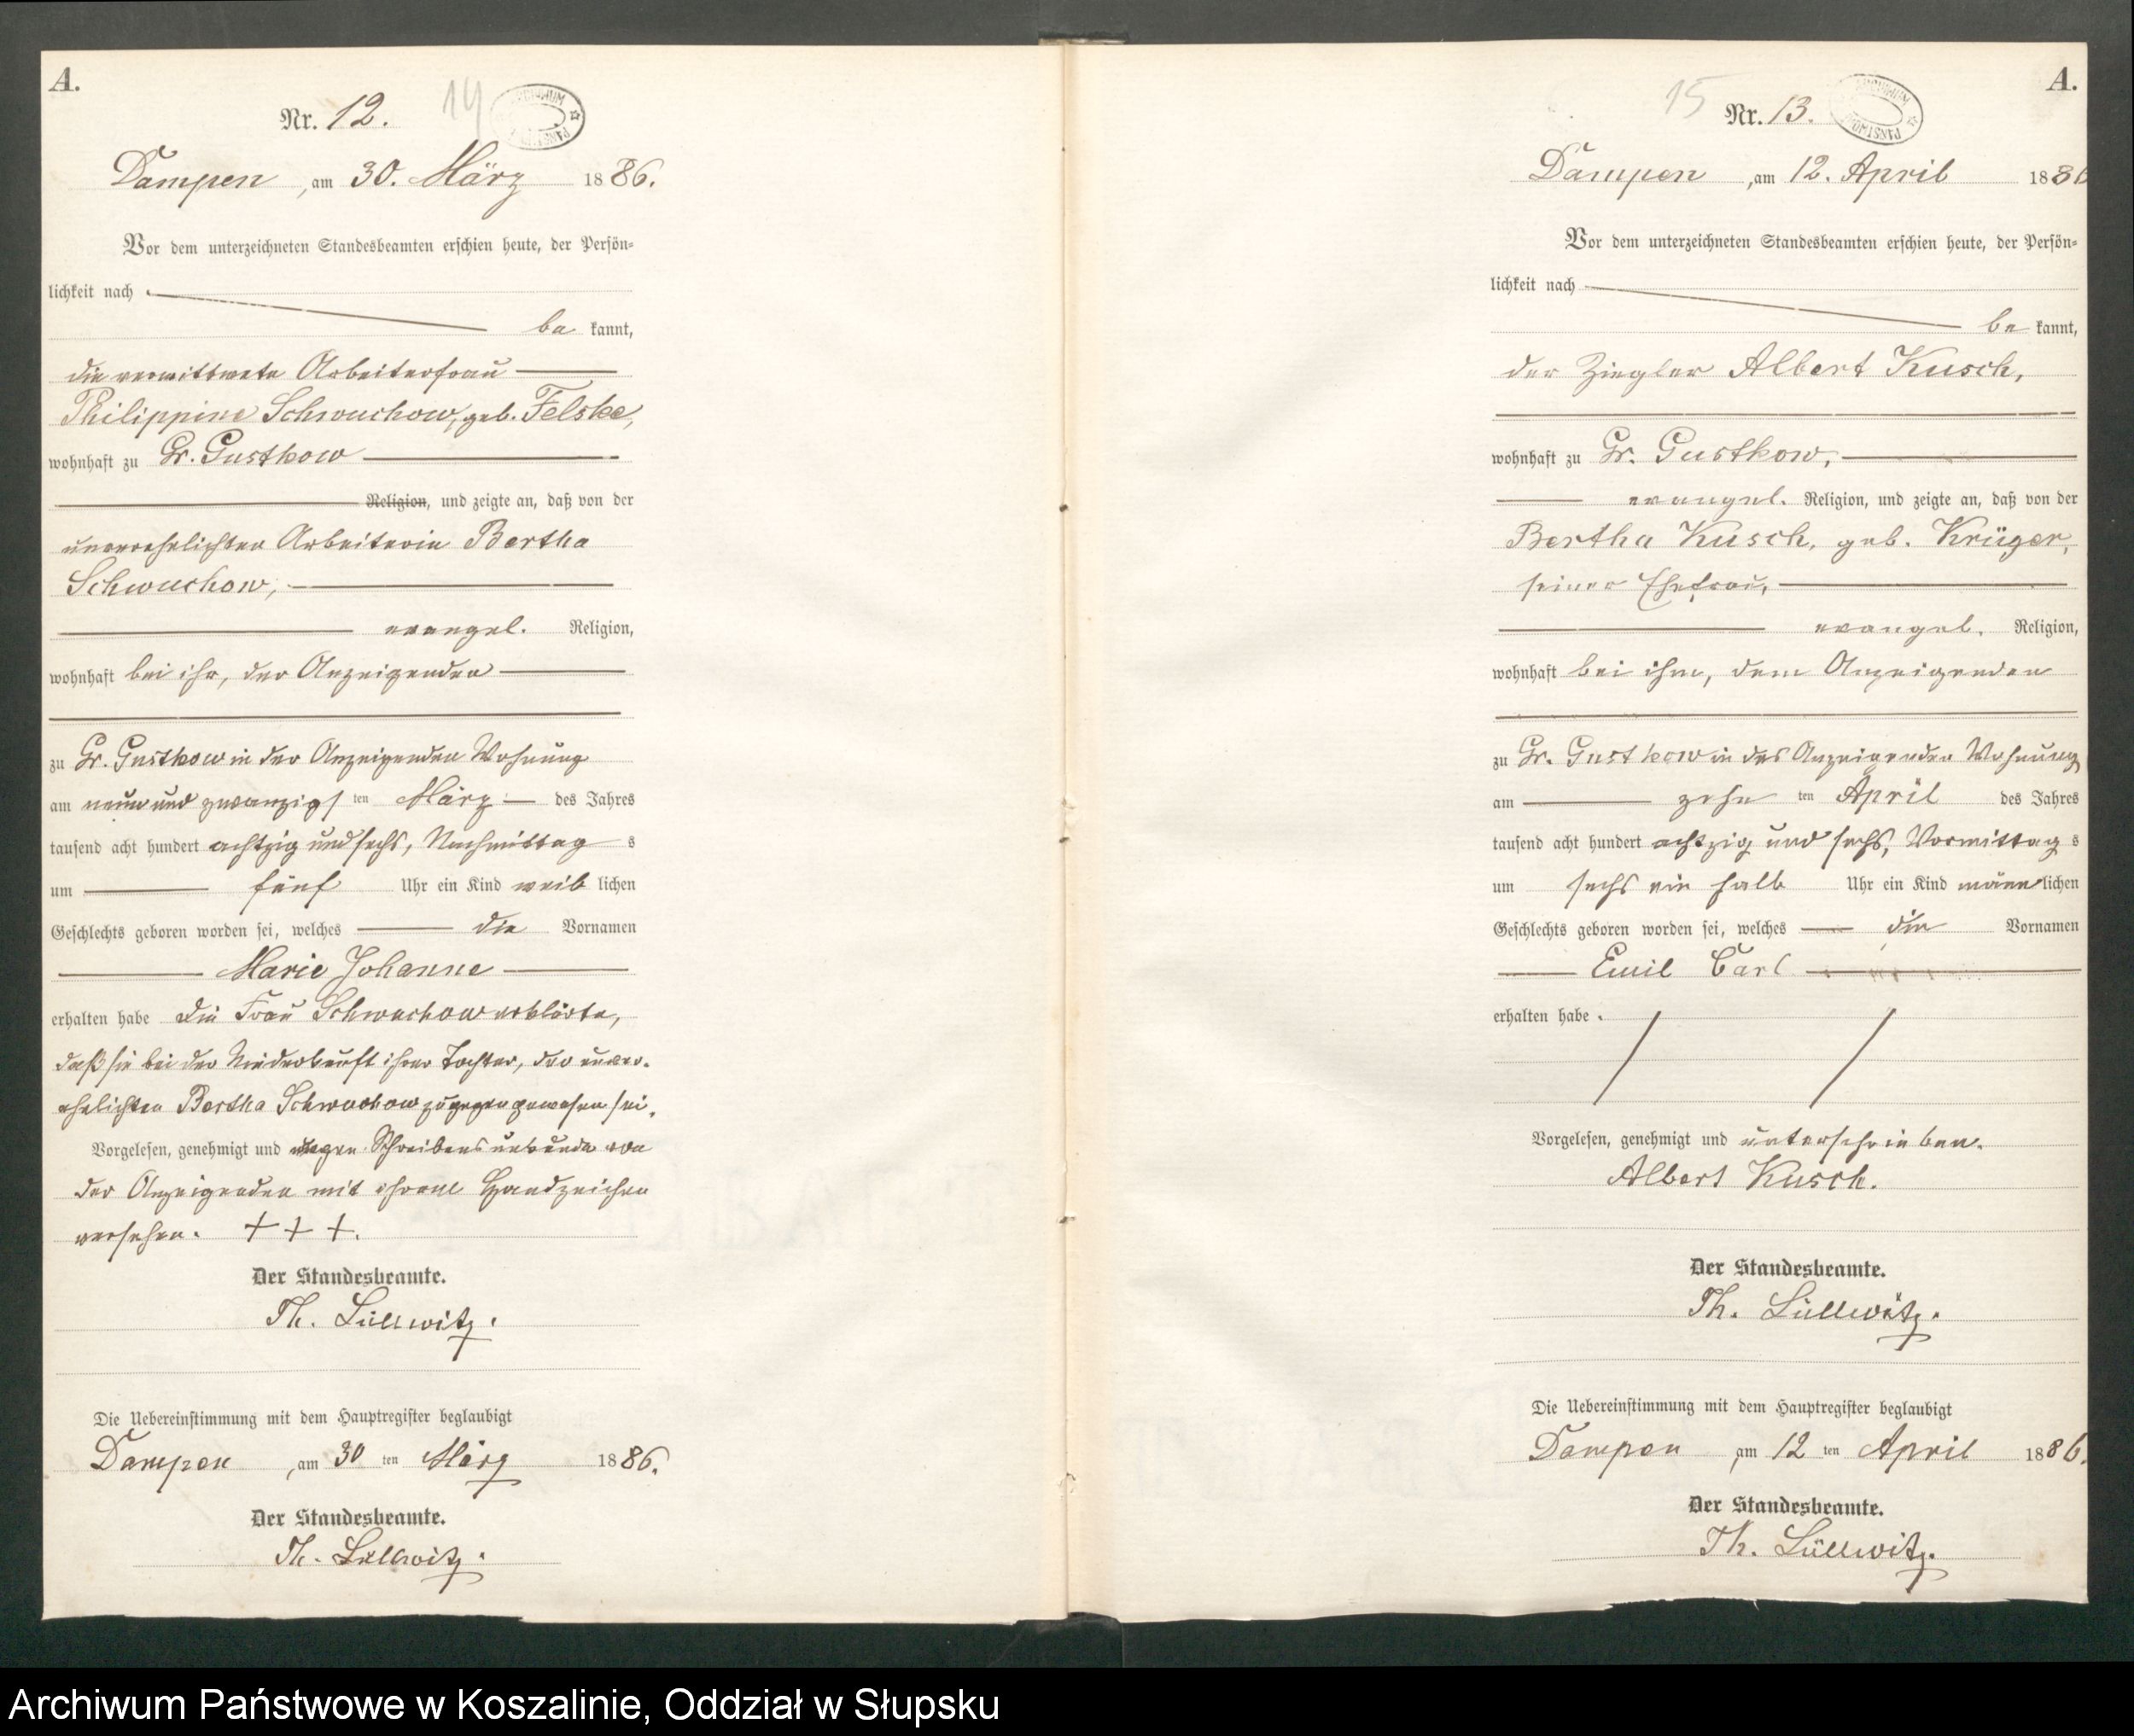 A.
Nr. 12.
14
Dampen, am 30. März 1886.
Vor dem unterzeichneten Standesbeamten erschien heute, der Persön-
lichkeit nach
be kannt,
die verwittwete Arbeiterfrau
Philippine Schwuchow, geb. Felske,
wohnhaft zu Gr. Gustkow
Religion, und zeigte an, daß von der
unverehelichten Arbeiterin Bertha
Schwuchow,
evangel. Religion,
wohnhaft bei ihr, der Anzeigenden
zu Gr. Gustkow in der Anzeigenden Wohnung
am neun und zwanzigs ten März des Jahres
tausend acht hundert achtzig und sechs, Nachmittag s
um fünf Uhr ein Kind weib lichen
Geschlechts geboren worden sei, welches die Vornamen
Marie Johanne
erhalten habe Die Frau Schwuchow erklärte,
daß sie bei der Niederkunft ihrer Tochter, der unver-
ehelichten Bertha Schwuchow zugegen gewesen sei.
Vorgelesen, genehmigt und wegen Schreibensunkunde von
der Anzeigenden mit ihrem Handzeichen
versehen. + + +.
Der Standesbeamte.
Th. Lüllwitz.
Die Uebereinstimmung mit dem Hauptregister beglaubigt
Dampen, am 30 ten März 1886.
Der Standesbeamte.
Th. Lüllwitz.
A.
15
Nr. 13.
Dampen, am 12. April 1886
Vor dem unterzeichneten Standesbeamten erschien heute, der Persön-
lichkeit nach
be kannt,
der Ziegler Albert Kusch,
wohnhaft zu Gr. Gustkow,
evangel. Religion, und zeigte an, daß von der
Bertha Kusch, geb. Krüger,
seiner Ehefrau,
evangel. Religion,
wohnhaft bei ihm, dem Anzeigenden
zu Gr. Gustkow in des Anzeigenden Wohnung
am zehn ten April des Jahres
tausend acht hundert achtzig und sechs, Vormittag s
um sechs ein halb Uhr ein Kind männ lichen
Geschlechts geboren worden sei, welches die Vornamen
Emil Carl
erhalten habe.
Vorgelesen, genehmigt und unterschrieben.
Albert Kusch.
Der Standesbeamte.
Th. Lüllwitz.
Die Uebereinstimmung mit dem Hauptregister beglaubigt
Dampen am 12 ten April 1886.
Der Standesbeamte.
Th. Lüllwitz.
Archiwum Państwowe w Koszalinie, Oddział w Słupsku